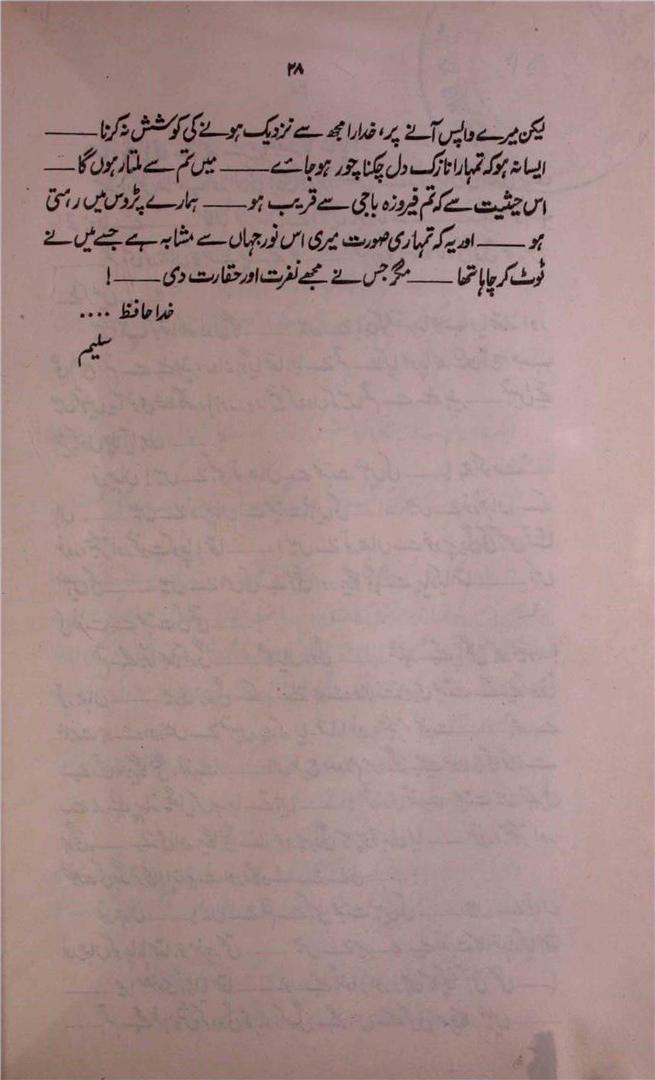 ۲۸
لیکن میرے واپس آنے پر، خدارا مجھ سے نزدیک ہونے کی کوشش نہ کرنا ——
ایسا نہ ہو کہ تمہارا نازک دل چکنا چور ہو جائے —— میں تم سے ملتا رہوں گا ——
اس حیثیت سے کہ تم فیروزہ باجی سے قریب ہو —— ہمارے پڑوس میں رہتی
ہو —— اور یہ کہ تمہاری صورت میری اس نور جہاں سے مشابہ ہے جسے میں نے
ٹوٹ کر چاہا تھا —— مگر جس نے مجھے نفرت اور حقارت دی —— !
خدا حافظ ....
سلیم